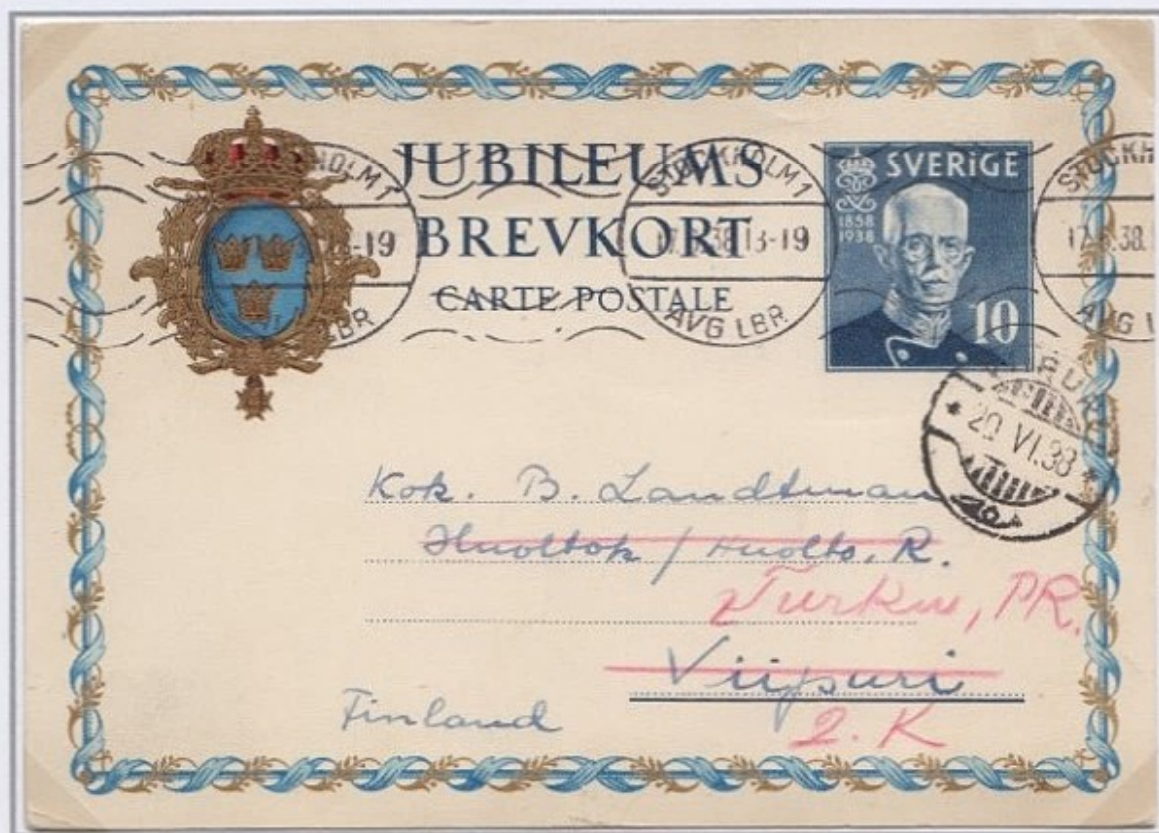 JUBILEUMS
BREVKORT
CARTE POSTALE
SVERIGE
1858
1938
10
HOLM 1
-19
LBR
STOCKHOLM 1
17. 38. 13-19
AVG LBR
STOCKH
17. 38.
AVG L
20 VI.38
Kok. B. Landtman
Huoltok / Huolto. R.
Turku, PR.
Viipuri
2. K
Finland